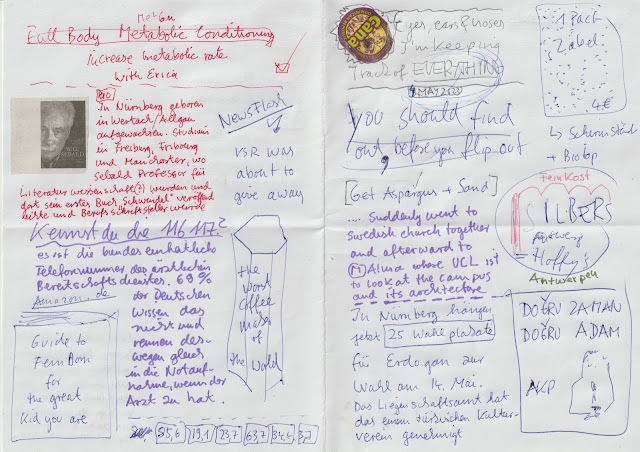 MetCon
Full Body Metabolic Conditioning
increase metabolic rate
with Erica
W.G.
SEBALD
Bio
In Nürnberg geboren
in Wertach/Allgäu
aufgewachsen. Studium
in Freiburg, Fribourg
und Manchester, wo
sebald Professor für
Literaturwissenschaft(?) wurden und
dort sein erstes Buch "Schwindel" veröffent
lichte und Berufsschriftsteller wurde
NewsFlash
VSR was
about to
give away
Kennst du die 116 117?
es ist die bundeseinheitliche
Telefonnummer des ärztlichen
Bereitschaftsdienstes. 69%
der Deutschen
wissen das
nicht und
rennen des-
wegen gleich
in die Notauf-
nahme, wenn der
Arzt zu hat.
Amazon.de
Guide to
FemDom
for
the great
Kid you are
the
worst
coffee
mass
of
the World
35,6 19,1 23,7 63,7 34,4 3,7
cana
Eyes, ears & noses
I'm keeping
Track of EVERYTHING
MAY 2023
you should find
out, before you flip out
[Get Aspargus + Sand]
.... Suddenly went to
Swedish church together
and afterward to
(M) Alma where UCL ist
to look at the campus
and its architectore
In Nürnberg hängen
jetzt 25 Wahlplakate
für Erdogan zur
Wahl am 14. Mai.
Das Liegenschaftsamt hat
das einem türkischen Kultur-
verein genehmigt
1 Pack
2 Label
4€
+ Biotop
FeinKost
SILBERS
Antwerp
= Hoffy's
Antwerpen
DOĞRU ZAMAN
DOĞRU ADAM
AKP